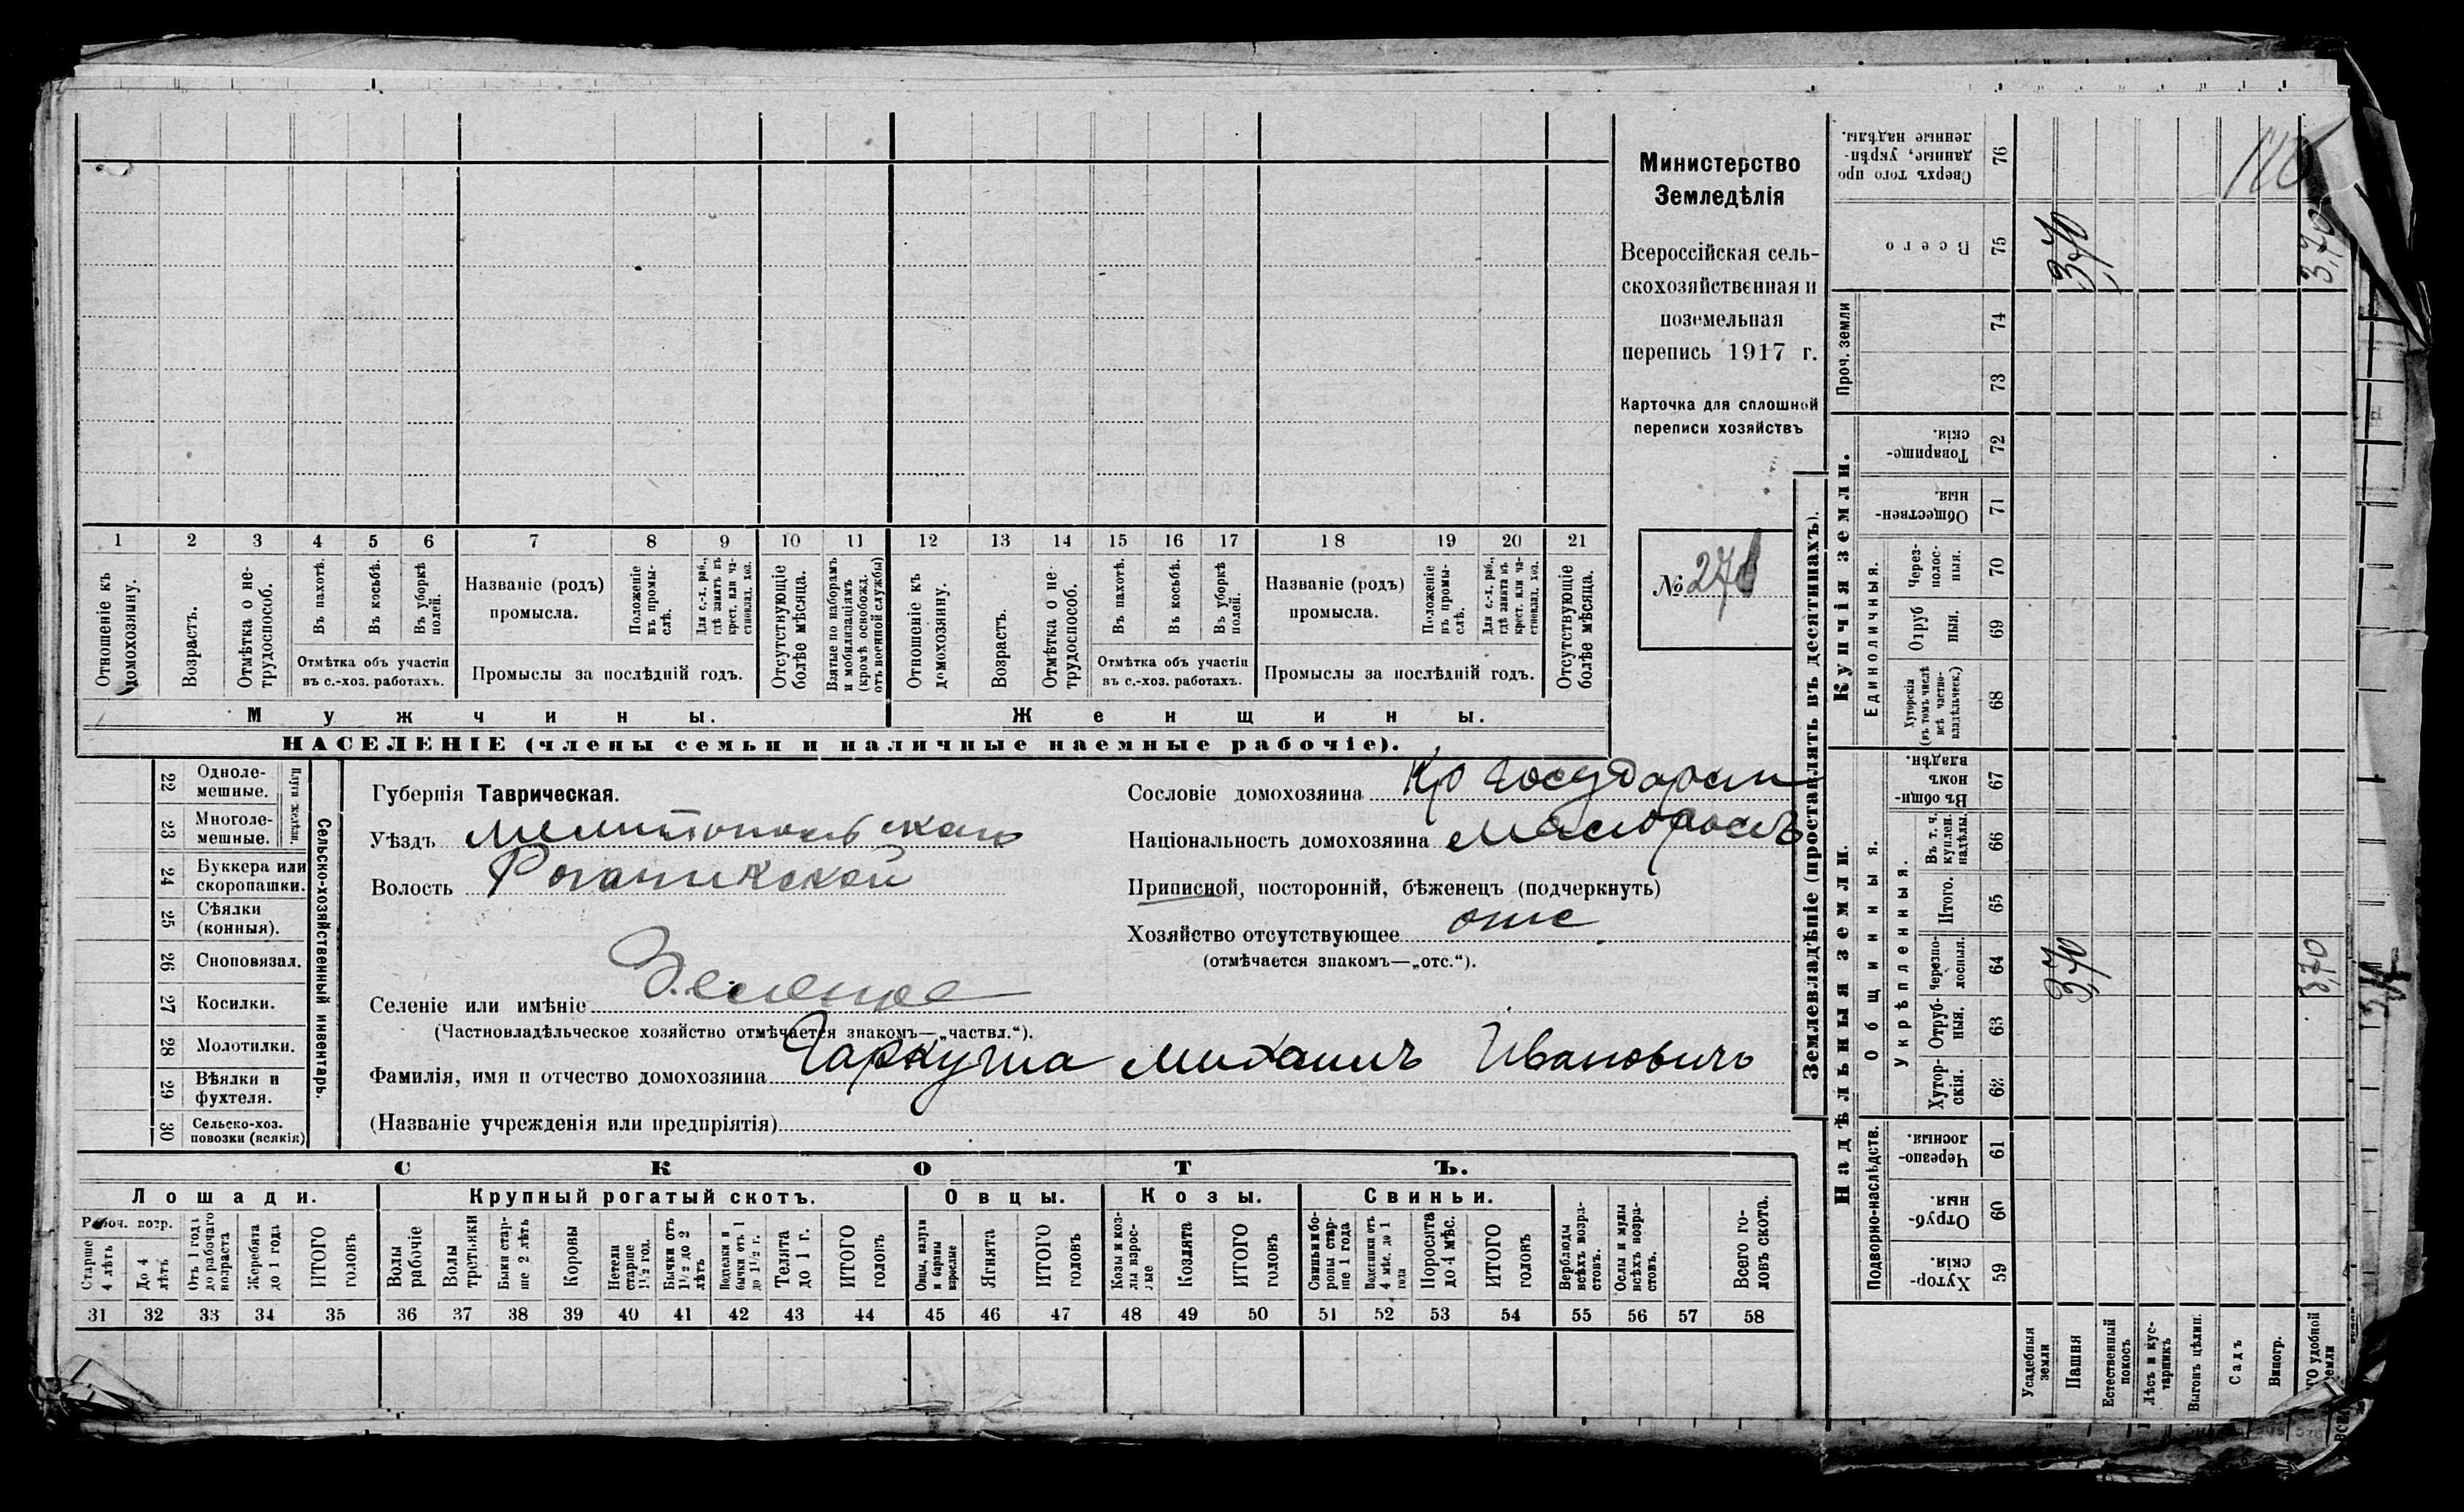 Министерство
Земледѣлія
Всероссійская сель-
скохозяйственная и
поземельная
перепись 1917 г.
Карточка для сплошной
переписи хозяйствъ
№ 270
1 2 3 4 5 6 7 8 9 10 11 12 13 14 15 16 17 18 19 20 21
Отношеніе къ домохозяину.
Возрастъ.
Отмѣтка о не-трудоспособ.
Въ пахотѣ.
Въ косьбѣ.
Въ уборкѣ полей.
Отмѣтка объ участіи
въ с.-хоз. работахъ.
Названіе (родъ)
промысла.
Положеніе въ промы-слѣ.
Для с.-х. раб., гдѣ занятъ въ крест. или ча-стновлад. хоз.
Промыслы за послѣдній годъ.
Отсутствующіе болѣе мѣсяца.
Взятые по наборамъ и мобилизаціямъ (кромѣ освобожд. отъ военной службы)
Отношеніе къ домохозяину.
Возрастъ.
Отмѣтка о не-трудоспособ.
Въ пахотѣ.
Въ косьбѣ.
Въ уборкѣ полей.
Отмѣтка объ участіи
въ с.-хоз. работахъ.
Названіе (родъ)
промысла.
Положеніе въ промы-слѣ.
Для с.-х. раб., гдѣ занята въ крест. или ча-стновлад. хоз.
Промыслы за послѣдній годъ.
Отсутствующіе болѣе мѣсяца.
Мужчины.
Женщины.
НАСЕЛЕНІЕ (члены семьи и наличные наемные рабочіе).
Сельско-хозяйственный инвентарь.
22 Одноле-мешные.
23 Многоле-мешные.
24 Буккера или скоропашки.
25 Сѣялки (конныя).
26 Сноповязал.
27 Косилки.
28 Молотилки.
29 Вѣялки и фухтеля.
30 Сельско-хоз. повозки (всякія)
Губернія Таврическая.
Уѣздъ Мелитопольскаго
Волость Рогачикской
Селеніе или имѣніе Зеленое
(Частновладѣльческое хозяйство отмѣчается знакомъ—„частвл.“).
Фамилія, имя и отчество домохозяина Гаркуша Михаилъ Ивановичъ
(Названіе учрежденія или предпріятія)
Сословіе домохозяина Кр Государств
Национальность домохозяина Малороссъ
Приписной, посторонній, бѣженецъ (подчеркнуть)
Хозяйство отсутствующее отс
(отмѣчается знакомъ—„отс.“).
СКОТЪ.
Лошади.
Крупный рогатый скотъ.
Овцы.
Козы.
Свиньи.
Рабоч. возр.
Старше 4 лѣтъ
До 4 лѣтъ
Отъ 1 года до рабочаго возраста
Жеребята до 1 года
ИТОГО головъ
Волы рабочіе
Волы третьяки
Быки стар-ше 2 лѣтъ
Коровы
Нетели старше 1½ год.
Бычки отъ 1½ до 2 лѣтъ
Подтелки и бычки отъ 1 до 1½ г.
Телята до 1 г.
ИТОГО головъ
Овцы, валухи и бараны взрослые
Ягнята
ИТОГО головъ
Козы и коз-лы взрос-лые
Козлята
ИТОГО головъ
Свиньи и бо-ровы стар-ше 1 года
Подсвинки отъ 4 мѣс. до 1 года
Поросята до 4 мѣс.
ИТОГО головъ
Верблюды всѣхъ возра-стовъ.
Ослы и мулы всѣхъ возра-стовъ.
Всего го-ловъ скота.
31 32 33 34 35 36 37 38 39 40 41 42 43 44 45 46 47 48 49 50 51 52 53 54 55 56 57 58
Землевладѣніе (проставлять въ десятинахъ).
Надѣльныя земли.
Купчія земли.
Проч. земли
Подворно-наслѣдств.
Общинныя.
Укрѣпленныя.
Единоличныя.
Хутор-скія. 59
Отруб-ныя. 60
Черезпо-лосныя. 61
Хутор-скія. 62
Отруб-ныя. 63
Черезпо-лосныя. 64
Итого. 65
Въ т. ч. куплен. надѣлы. 66
Въ общи-номъ владѣн. 67
Хуторскія (въ томъ числѣ всѣ частно-владѣльческ.) 68
Отруб ныя. 69
Через-полос-ныя. 70
Обществен-ныя. 71
Товарище-скія. 72
73
74
Всего 75
Сверхъ того про данные, укрѣп-ленные надѣлы. 76
Усадебныя земли
Пашня 3,70 3,70
Естественный покосъ
Лѣсъ и кус-тарникъ
Выгонъ цѣлин.
Садъ
Виногр.
ГО удобной земли 3,70 3,70